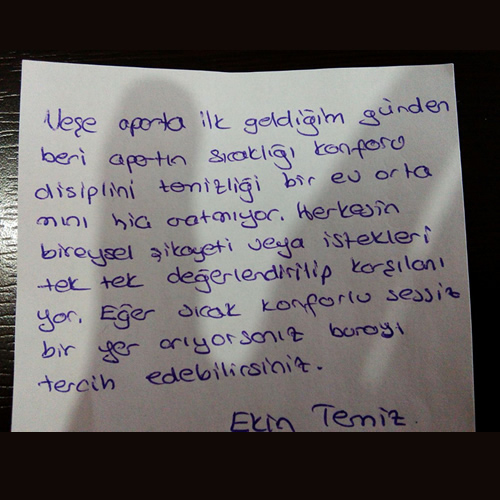 Neşe aparta ilk geldiğim günden
beri apartın sıcaklığı konforu
disiplini temizliği bir ev orta
mını hiç aratmıyor. Herkesin
bireysel şikayeti veya istekleri
tek tek değerlendirilip karşılanı
yor. Eğer sıcak konforlu sessiz
bir yer arıyorsanız burayı
tercih edebilirsiniz.
Ekin Temiz.